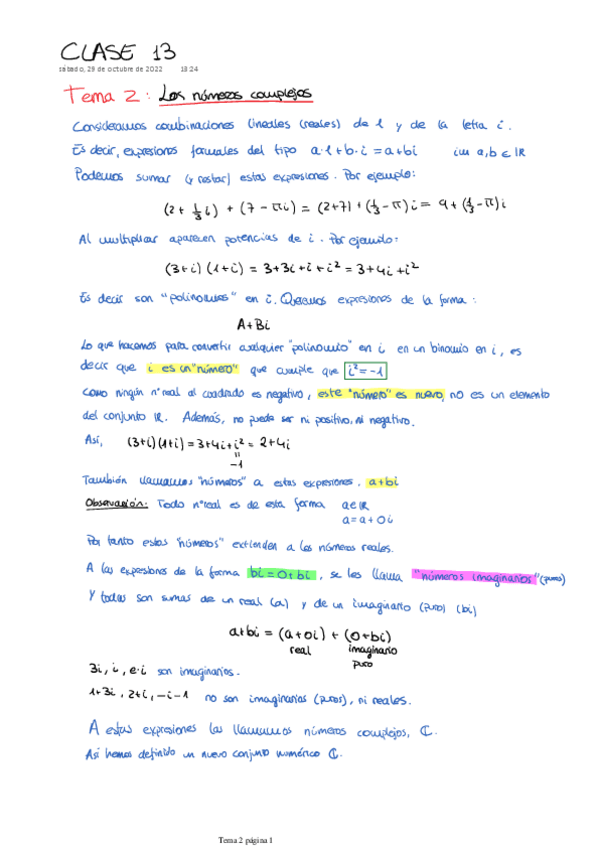 CLASE 13
sábado, 29 de octubre de 2022 13:24
Tema 2: Los números complejos
Consideramos combinaciones lineales (reales) de 1 y de la letra i.
Es decir, expresiones formales del tipo a·1+b·i = a+bi con a,b ∈ ℝ
Podemos sumar (y restar) estas expresiones. Por ejemplo:
(2 + 1/3 i) + (7 - πi) = (2+7) + (1/3 - π)i = 9 + (1/3 - π)i
Al multiplicar aparecen potencias de i. Por ejemplo:
(3+i)(1+i) = 3+3i+i+i² = 3+4i+i²
Es decir son "polinomios" en i. Queremos expresiones de la forma:
A+Bi
Lo que hacemos para convertir cualquier "polinomio" en i en un binomio en i, es
decir que i es un "número" que cumple que i² = -1
Como ningún nº real al cuadrado es negativo, este "número" es nuevo, no es un elemento
del conjunto ℝ. Además, no puede ser ni positivo, ni negativo.
Así, (3+i)(1+i) = 3+4i+i² = 2+4i
=
-1
También llamamos "números" a estas expresiones. a+bi
Observación: Todo nº real es de esta forma a∈ℝ
a = a+0i
Por tanto estos "números" extienden a los números reales.
A las expresiones de la forma bi = 0+bi, se les llama "números imaginarios" (puros)
Y todos son sumas de un real (a) y de un imaginario (puro) (bi)
a+bi = (a+0i) + (0+bi)
real imaginario
puro
3i, i, e·i son imaginarios.
1+3i, 2+i, -i-1 no son imaginarios (puros), ni reales.
A estas expresiones las llamamos números complejos, ℂ.
Así hemos definido un nuevo conjunto numérico ℂ.
Tema 2 página 1